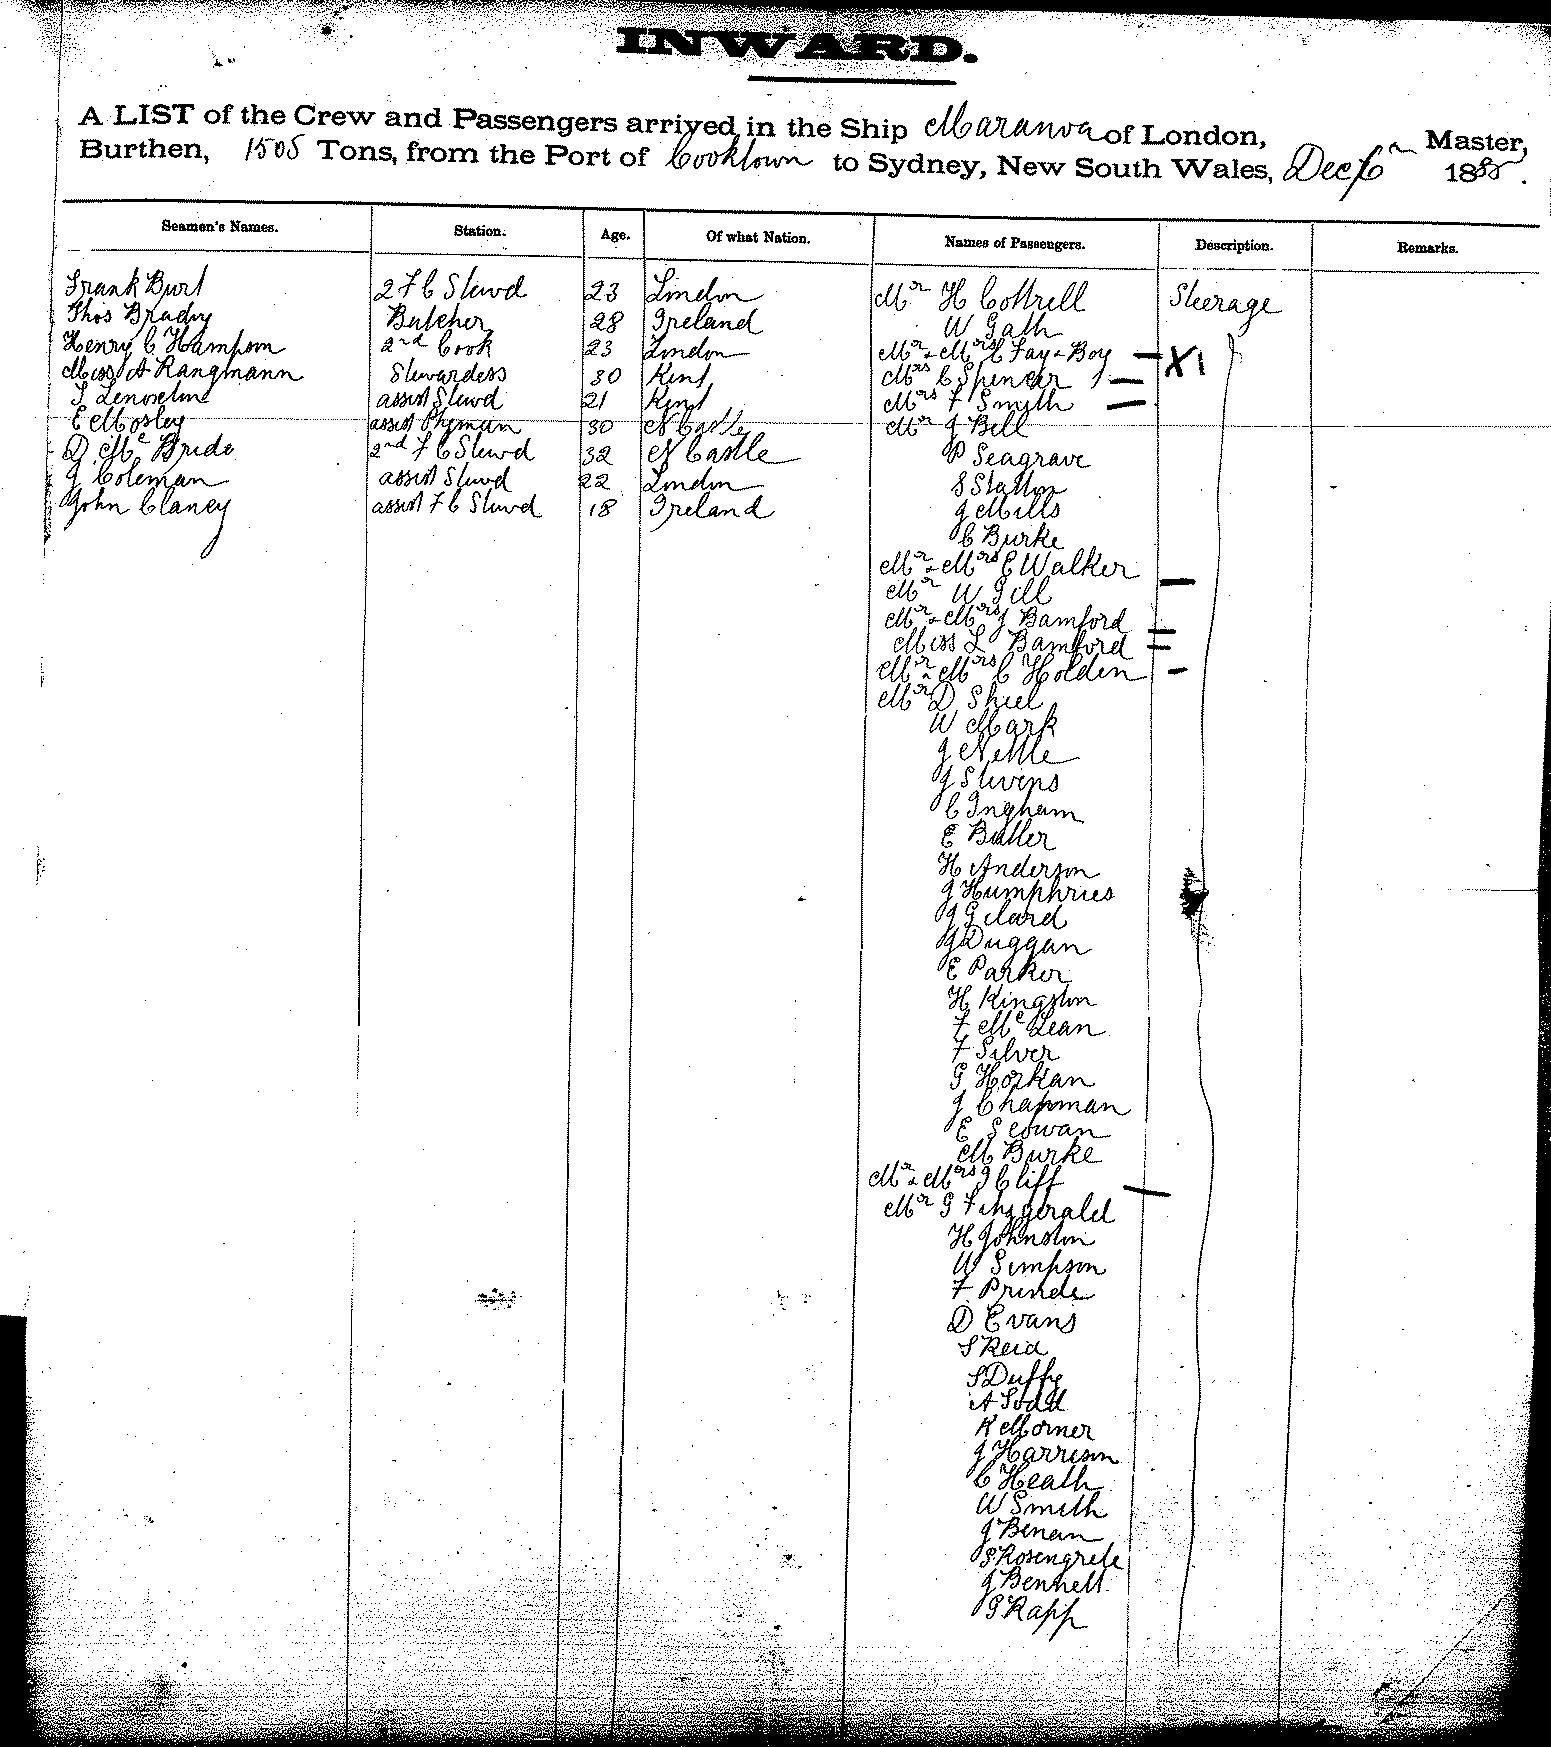 INWARD.
A LIST of the Crew and Passengers arrived in the Ship Maranoa of London, Master,
Burthen, 1505 Tons, from the Port of Cooktown to Sydney, New South Wales, Dec 6th 1888.
Seamen's Names. Station. Age. Of what Nation. Names of Passengers. Description. Remarks.
Frank Burt 2 F C Stewd 23 London Mr H Cottrell Steerage
Thos Brady Butcher 28 Ireland W Gath
Henry C Hampson 2nd Cook 23 London Mr & Mrs C Fay & Boy X1
Miss A Rangmann Stewardess 30 Kent Mrs C Spencer
assist Stewd 21 Kent Mrs F Smith
E Mosley assist 30 N Castle Mr J Bell
D McBride 2nd F C Stewd 32 N Castle P Seagrave
J Coleman assist Stewd 22 London S Statton
John Clancy assist F C Stewd 18 Ireland J Mills
C Burke
Mr & Mrs E Walker
Mr W Gill
Mr & Mrs J Bamford
Miss L Bamford
Mr & Mrs C Holden
Mr D Shiel
W Mark
J Nettle
J Stevens
C Ingham
E Butler
H Anderson
J Humphries
J Gilard
J Duggan
E Parker
H Kingston
F McLean
F Silver
G Horkan
J Chapman
E Scowan
M Burke
Mr & Mrs J Cliff
Mr G Fitzgerald
H Johnston
W Simpson
F Prinde
D Evans
S Reid
S Duffy
A Todd
K Morner
J Harrison
C Heath
W Smith
J Benean
S Rosengrele
J Bennett
G Rapp